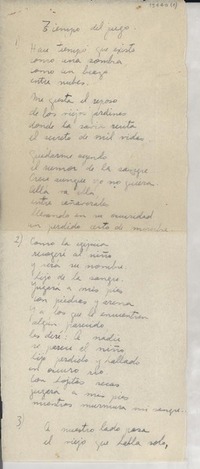 Tiempo del juego.
1)
Hace tiempo que existe
como una sombra
como un brazo
entre nubes.
Me gusta el reposo
de los viejos jardines
donde la savia
el secreto de mil vidas
el rumor de la sangre
Crece aunque yo no quiera
Allá va ella
entre
en su oscuridad
un perdido de hombre.
2) Como la espiga
recogeré al niño
y será su nombre
hijo de la sangre.
Jugará a mis pies
con piedras y arena
Y a los que le encuentren
algún parecido
les diré: A nadie
se parece el niño
hijo perdido y hallado
en oscuro río
con hojitas secas
jugará a mis pies
mientras murmura mi sangre.
3)
A nuestro lado pasa
el viejo que habla solo,